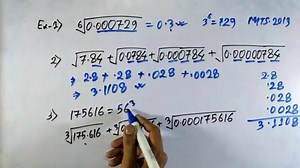 Ex-1) ⁶√0.000729 = 0.3 3⁶ = 729 MTS.2013
2) √7.84 + √0.0784 + √0.000784 + √0.00000784
⇒ 2.8 + .28 + .028 + .0028
⇒ 3.1108
2.8
.28
.028
.0028
3.1108
3) 175616 = 56³
³√175.616 + ³√0. + ³√0.000175616